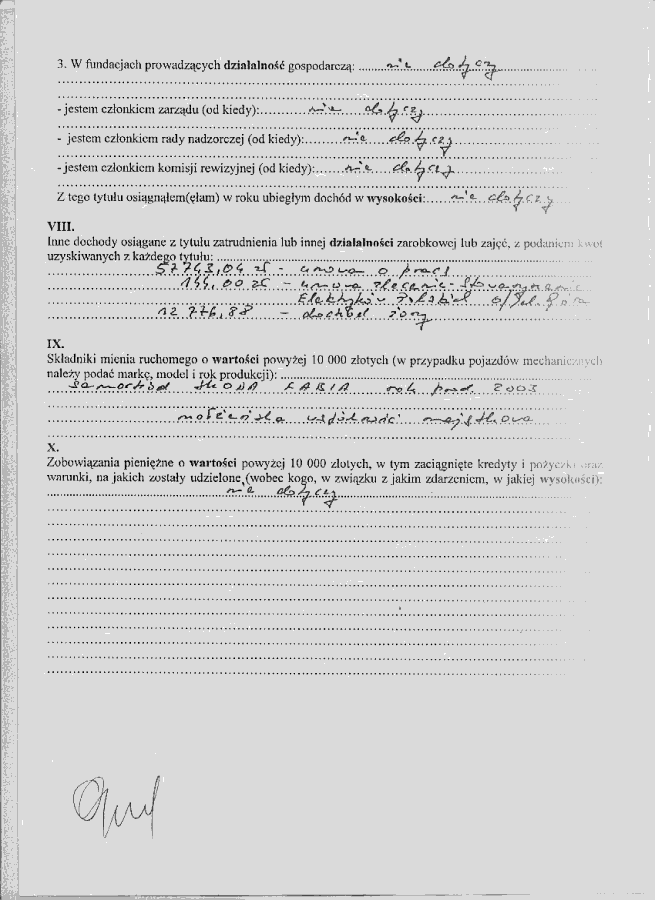 3. W fundacjach prowadzących działalność gospodarczą: nie dotyczy
- jestem członkiem zarządu (od kiedy): nie dotyczy
- jestem członkiem rady nadzorczej (od kiedy): nie dotyczy
- jestem członkiem komisji rewizyjnej (od kiedy): nie dotyczy
Z tego tytułu osiągnąłem(ęłam) w roku ubiegłym dochód w wysokości: nie dotyczy
VIII.
Inne dochody osiągane z tytułu zatrudnienia lub innej działalności zarobkowej lub zajęć, z podaniem kwot
uzyskiwanych z każdego tytułu:
57743,04 zł - umowa o pracę
144,00 zł - umowa zlecenie - Stowarzyszenie
Elektryków Polskich o/Jel. Góra
12 776,88 - dochód żony
IX.
Składniki mienia ruchomego o wartości powyżej 10 000 złotych (w przypadku pojazdów mechanicznych
należy podać markę, model i rok produkcji):
samochód SKODA FABIA rok prod. 2003
małżeńska wspólność majątkowa
X.
Zobowiązania pieniężne o wartości powyżej 10 000 złotych, w tym zaciągnięte kredyty i pożyczki oraz
warunki, na jakich zostały udzielone (wobec kogo, w związku z jakim zdarzeniem, w jakiej wysokości):
nie dotyczy